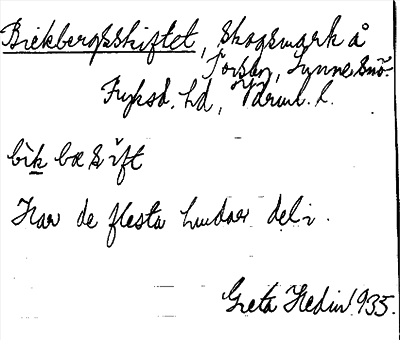 Biekbergsskiftet, skogsmark å
Torsby, Lysvik sn.
Fryksd. hd, Värml. l.
bìk bæ s ift
Har de flesta hindar del i.
Greta Hedin 1935.